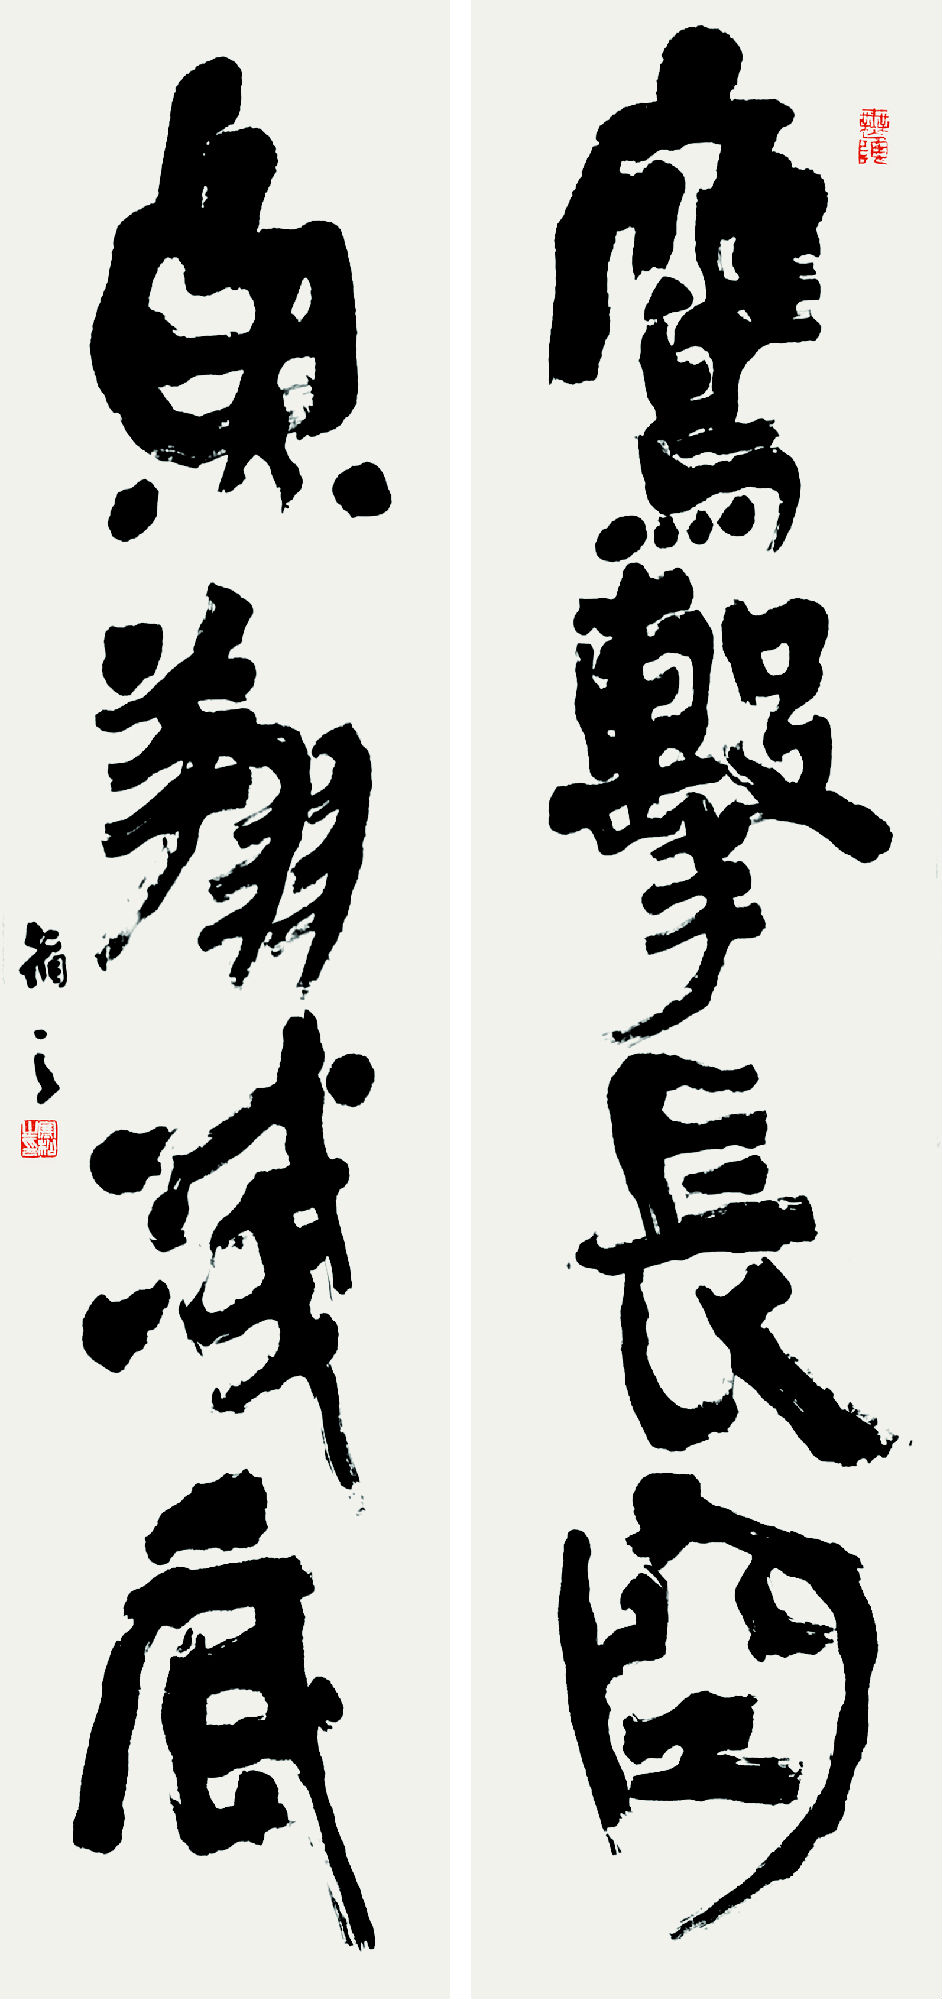 鷹擊長空
魚翔淺底
之